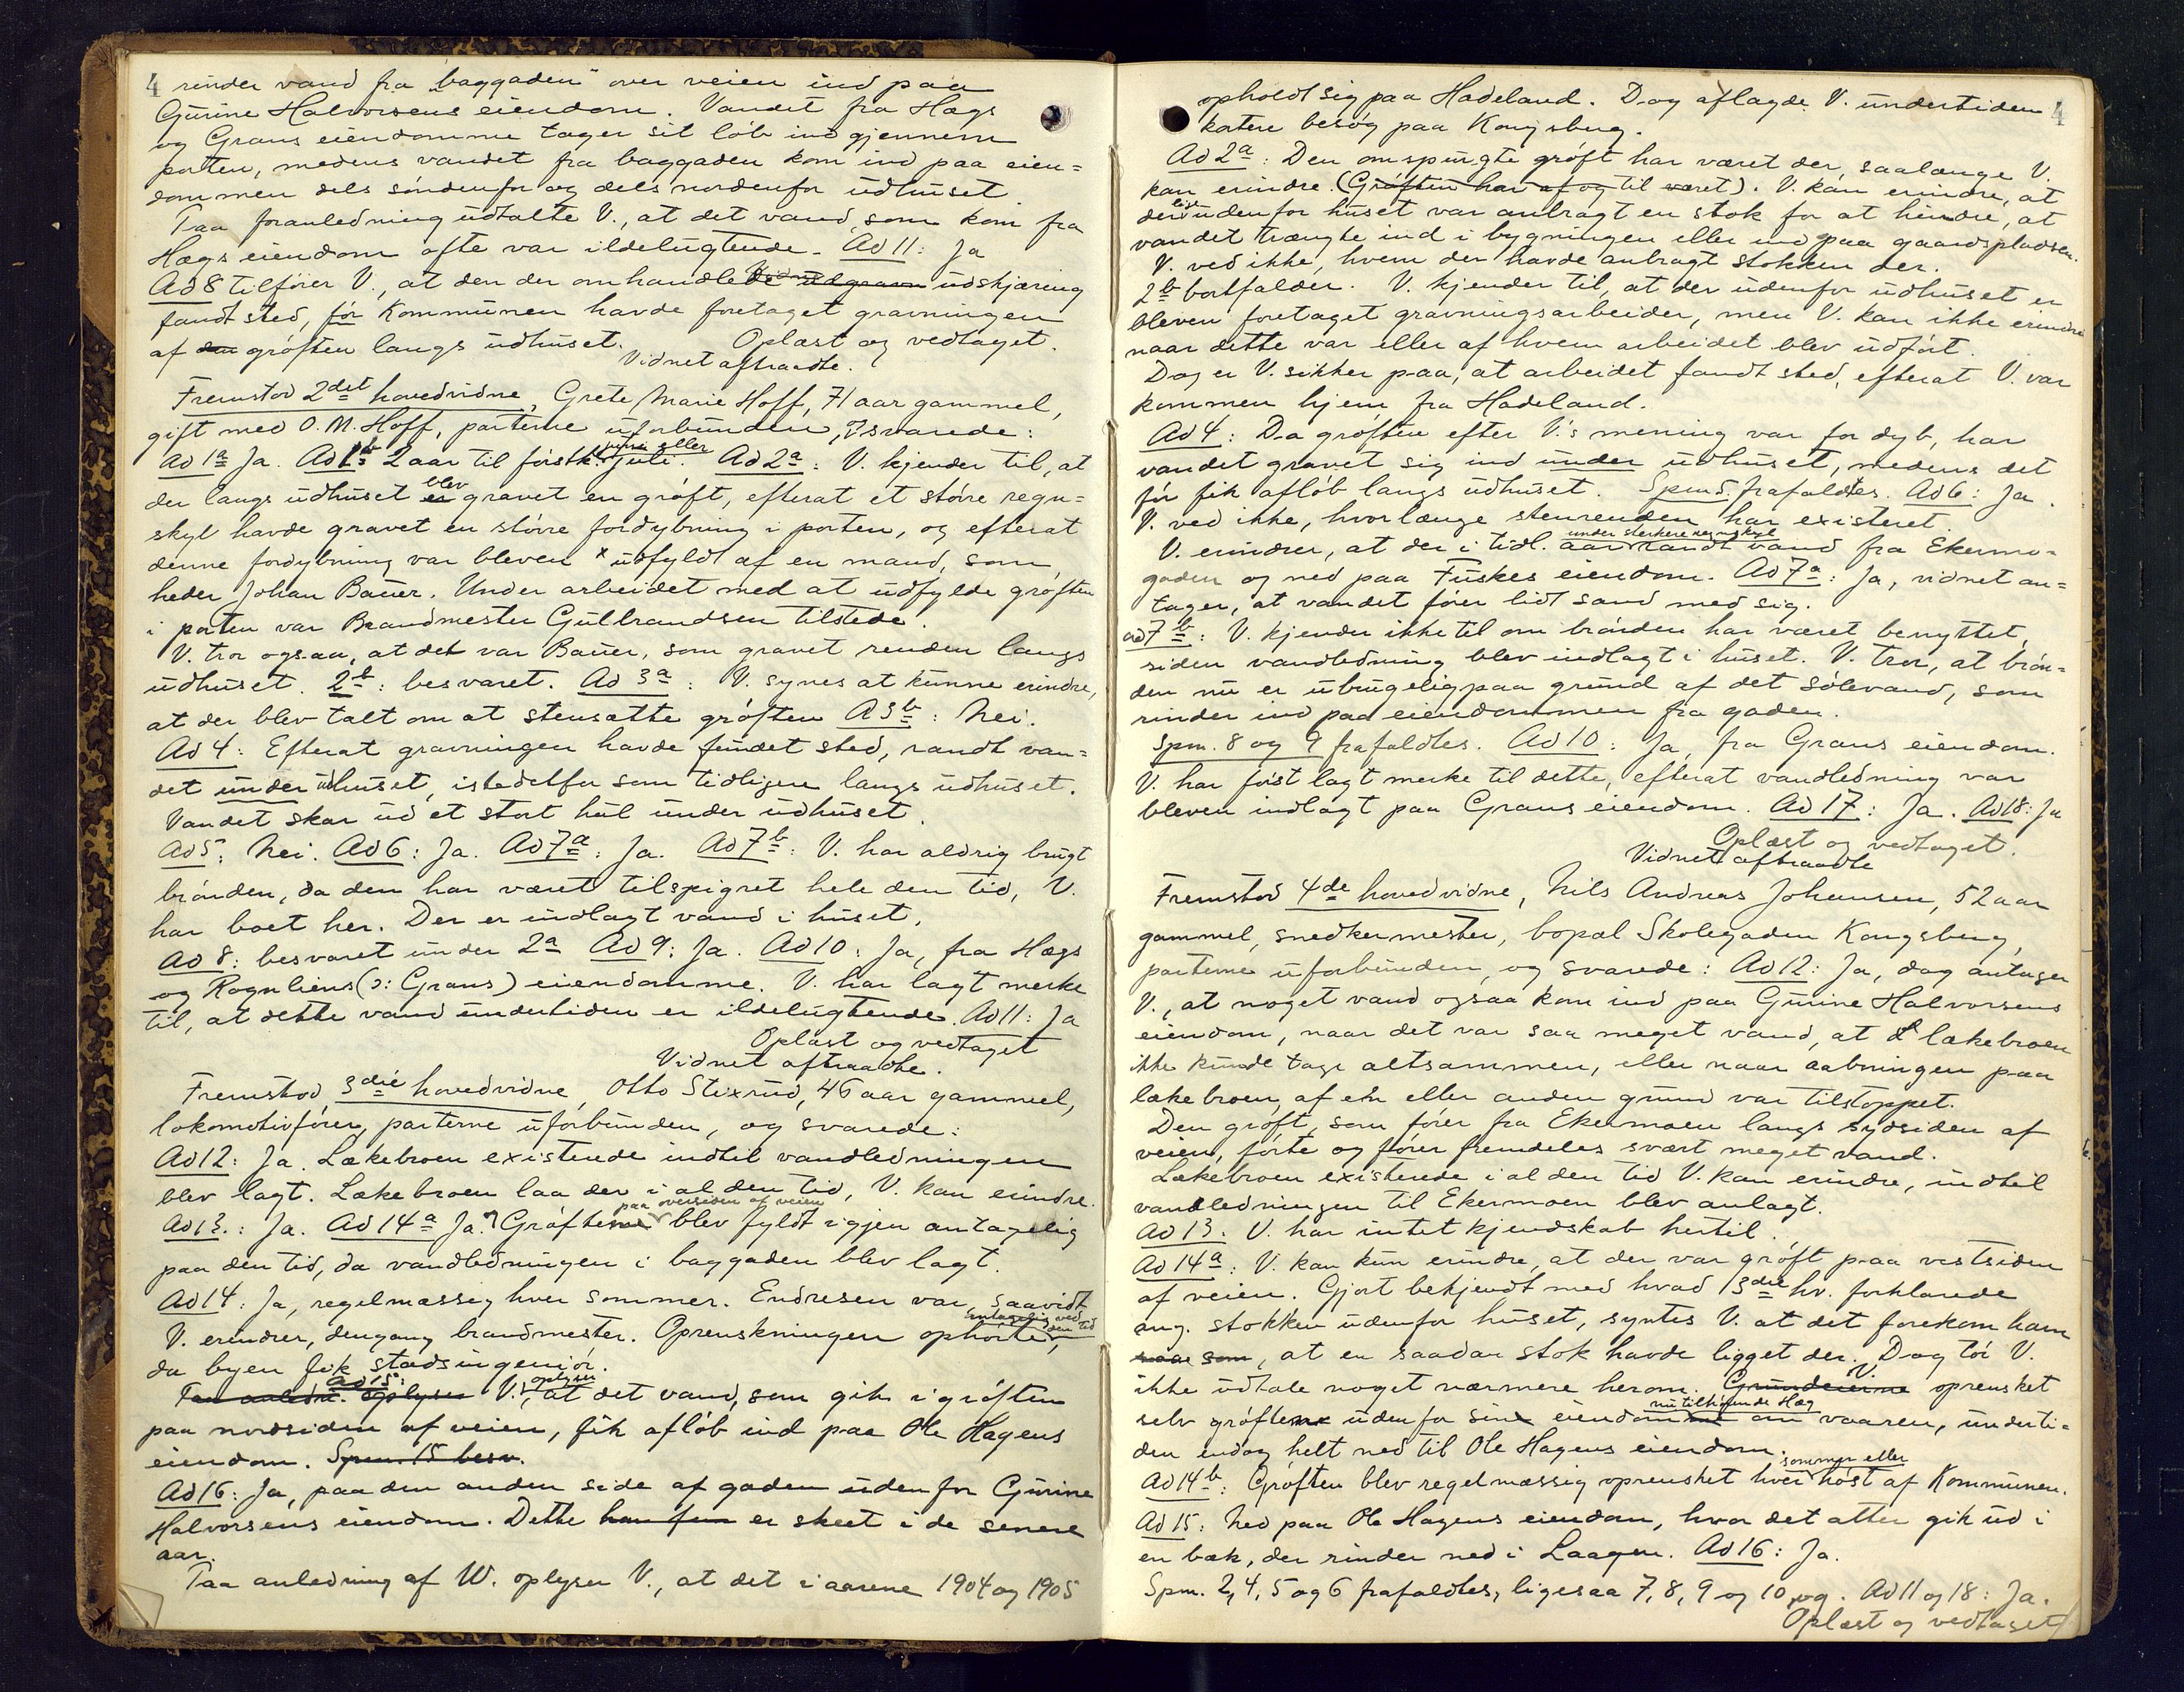 4 rinder vand fra "baggaden" over veien ind paa
Gurine Halvorsens eiendom. Vandet fra Hægs
og Grans eiendomme tager sit løb ind gjennem
porten, medens vandet fra baggaden kom ind paa eien=
dommen dels søndenfor og dels nordenfor udhuset.
Paa foranledning udtalte V., at det vand, som kom fra
Hægs eiendom ofte var ildelugtende. Ad 11: Ja
Ad 8 tilføier V., at den der omhandlede udskjæring
fandt sted, før Kommunen havde foretaget gravningen
af den grøften langs udhuset. Oplæst og vedtaget.
Vidnet aftraadte.
Fremstod 2det hovedvidne, Grete Marie Hoff, 71 aar gammel,
gift med O. M. Hoff, parterne uforbunden, svarede:
juni eller
Ad 1a Ja. Ad 1b 2 aar til førstk. juli. Ad 2a: V. kjender til, at
blev
der langs udhuset er gravet en grøft, efterat et større regn=
skyl havde gravet en større fordybning i porten, og efterat
denne fordybning var bleven x udfyldt af en mand, som
heder Johan Bauer. Under arbeidet med at udfylde grøften
i porten var Brandmester Gulbrandsen tilstede.
V. tror ogsaa, at det var Bauer, som gravet renden langs
udhuset. 2b: besvaret. Ad 3a: V. synes at kunne erindre,
at der blev talt om at stensætte grøften A3b: Nei.
Ad 4: Efterat gravningen havde fundet sted, randt van=
det under udhuset, istedetfor som tidligere langs udhuset.
Vandet skar ud et stort hul under udhuset.
Ad 5: Nei. Ad 6: Ja. Ad 7a: Ja. Ad 7b: V. har aldrig brugt
brønden, da den har været tilspigret hele den tid, V.
har boet her. Der er indlagt vand i huset.
Ad 8: besvaret under 2a Ad 9: Ja. Ad 10: Ja, fra Hægs
og Rognliens (ɔ: Grans) eiendomme. V. har lagt merke
til, at dette vand undertiden er ildelugtende. Ad 11: Ja
Oplæst og vedtaget
Vidnet aftraadte.
Fremstod 3die hovedvidne, Otto Stixrud, 46 aar gammel,
lokomotivfører, parterne uforbunden, og svarede:
Ad 12: Ja. Lækebroen existerede indtil vandledningen
blev lagt. Lækebroen laa der i al den tid, V. kan erindre.
paa oversiden af veien
Ad 13.: Ja. Ad 14a Ja. Grøfterne blev fyldt igjen antagelig
paa den tid, da vandledningen i baggaden blev lagt.
Ad 14: Ja, regelmæssig hver sommer. Endresen var, saavidt
antagelig ved den tid
V. erindrer, dengang brandmester. Oprenskningen ophørte,
da byen fik stadsingeniør.
Ad 15: oplyser
Paa anledn. oplyser V., at det vand, som gik i grøften
paa nordsiden af veien, fik afløb ind paa Ole Hagens
eiendom. Spm. 15 besv.
Ad 16: Ja, paa den anden side af gaden udenfor Gurine
Halvorsens eiendom. Dette er skeet i de senere
aar.
Paa anledning af W. oplyser V., at det i aarene 1904 og 1905
4
opholdt sig paa Hadeland. Dog aflagde V. undertiden
kortere besøg paa Kongsberg.
Ad 2a: Den omspurgte grøft har været der, saalænge V.
kan erindre. (Grøften har af og til været). V. kan erindre, at
lige
der udenfor huset var anbragt en stok for at hindre, at
vandet trængte ind i bygningen eller ind paa gaardspladsen.
V. ved ikke, hvem der havde anbragt stokken der.
2b bortfalder. V. kjender til, at der udenfor udhuset er
bleven foretaget gravningsarbeider, men V. kan ikke erindre
naar dette var eller af hvem arbeidet blev udført.
Dog er V. sikker paa, at arbeidet fandt sted, efterat V. var
kommen hjem fra Hadeland.
Ad 4: Da grøften efter V.'s mening var for dyb, har
vandet gravet sig ind under udhuset, medens det
før fik afløb langs udhuset. Spm 5. frafaldtes. Ad 6: Ja.
V. ved ikke, hvorlænge stenrenden har existeret.
under sterkere regnskyl
V. erindrer, at der i tidl. aar randt vand fra Ekermo=
gaden og ned paa Fuskes eiendom. Ad 7a: Ja, vidnet an=
tager, at vandet fører lidt sand med sig.
ad 7b: V. kjender ikke til om brønden har været benyttet,
siden vandledning blev indlagt i huset. V. tror, at brøn=
den nu er ubrugelig paa grund af det sølevand, som
rinder ind paa eiendommen fra gaden.
Spm. 8 og 9 frafaldtes. Ad 10: Ja, fra Grans eiendom.
V. har først lagt merke til dette, efterat vandledning var
bleven indlagt paa Grans eiendom. Ad 17: Ja. Ad 18: Ja
Oplæst og vedtaget.
Vidnet aftraadte
Fremstod 4de hovedvidne, Nils Andreas Johansen, 52 aar
gammel, snedkermester, bopæl Skolegaden Kongsberg,
parterne uforbunden, og svarede: Ad 12: Ja, dog antager
V., at noget vand ogsaa kom ind paa Gurine Halvorsens
eiendom, naar det var saa meget vand, at lækebroen
ikke kunde tage altsammen, eller naar aabningen paa
lækebroen, af en eller anden grund var tilstoppet.
Den grøft, som fører fra Ekermoen langs sydsiden af
veien, førte og fører fremdeles svært meget vand.
Lækebroen existerede i al den tid V. kan erindre, indtil
vandledningen til Ekermoen blev anlagt.
Ad 13. V. har intet kjendskab hertil.
Ad 14a: V. kan kun erindre, at der var grøft paa vestsiden
af veien. Gjort bekjendt med hvad 3die hv. forklarede
ang. stokken udenfor huset, syntes V. at det forekom ham
som, at en saadan stok havde ligget der. Dog tør V.
V.
ikke udtale noget nærmere herom. Grundeierne oprensket
nu tilhørende Hæg
selv grøften udenfor sin eiendom om vaaren, underti=
den endog helt ned til Ole Hagens eiendom.
sommer eller
Ad 14b: Grøften blev regelmæssig oprensket hver høst af Kommunen.
Ad 15: Ned paa Ole Hagens eiendom, hvor det atter gik ud i
en bæk, der rinder ned i Laagen. Ad 16: Ja.
Spm. 2, 4, 5 og 6 frafaldtes, ligesaa 7, 8, 9 og 10 og. Ad 11 og 18: Ja.
Oplæst og vedtaget